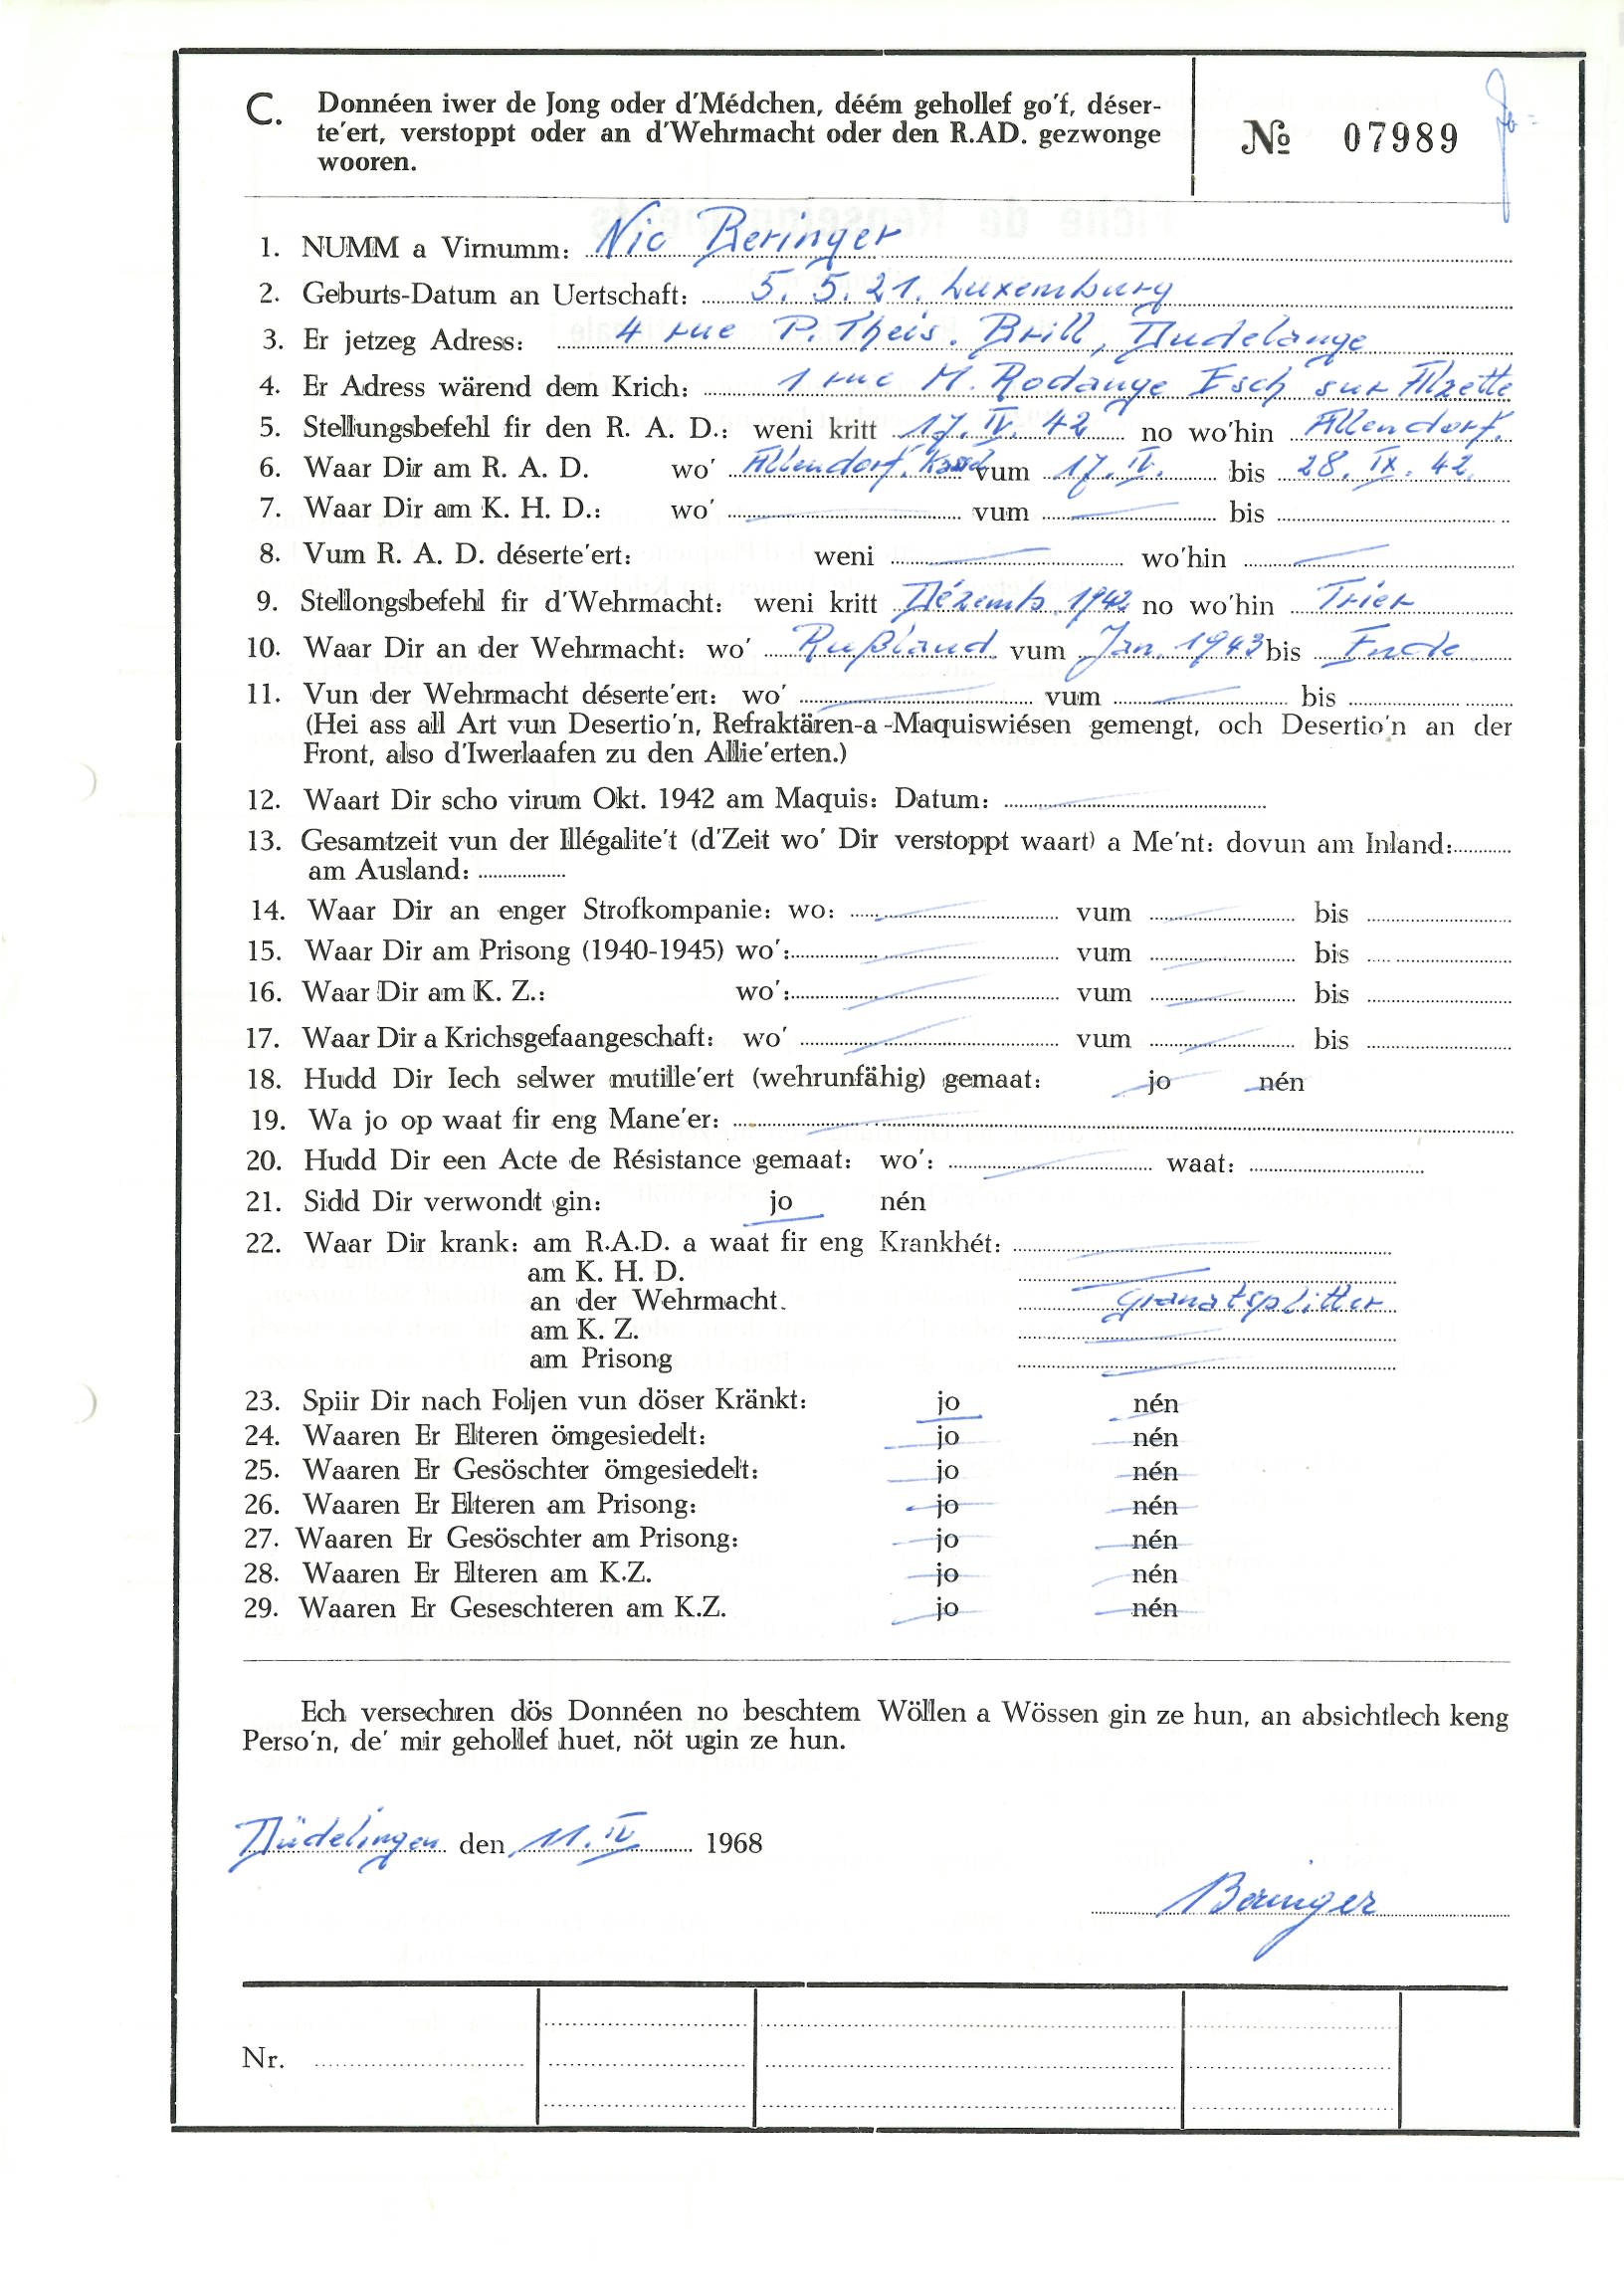 C. Donnéen iwer de Jong oder d'Médchen, déém gehollef go'f, déser-
te'ert, verstoppt oder an d'Wehrmacht oder den R.AD. gezwonge
wooren.
№ 07989
1. NUMM a Virnumm: Nic Beringer
2. Geburts-Datum an Uertschaft: 5. 5. 21. Luxemburg
3. Er jetzeg Adress: 4 rue P. Theis. Brill, Dudelange
4. Er Adress wärend dem Krich: 1 rue M. Rodange Esch sur Alzette
5. Stellungsbefehl fir den R. A. D.: weni kritt 17. IV. 42 no wo'hin Allendorf.
6. Waar Dir am R. A. D. wo' Allendorf. Kassel vum 17. IV. bis 28. IX. 42.
7. Waar Dir am K. H. D.: wo' vum bis
8. Vum R. A. D. déserte'ert: weni wo'hin
9. Stellongsbefehl fir d'Wehrmacht: weni kritt Dézemb. 1942 no wo'hin Trier
10. Waar Dir an der Wehrmacht: wo' Rußland. vum Jan. 1943 bis Ende
11. Vun der Wehrmacht déserte'ert: wo' vum bis
(Hei ass all Art vun Desertio'n, Refraktären-a-Maquiswiésen gemengt, och Desertio'n an der
Front, also d'Iwerlaafen zu den Allie'erten.)
12. Waart Dir scho virum Okt. 1942 am Maquis: Datum:
13. Gesamtzeit vun der Illégalite't (d'Zeit wo' Dir verstoppt waart) a Me'nt: dovun am Inland:
am Ausland:
14. Waar Dir an enger Strofkompanie: wo: vum bis
15. Waar Dir am Prisong (1940-1945) wo': vum bis
16. Waar Dir am K. Z.: wo': vum bis
17. Waar Dir a Krichsgefaangeschaft: wo' vum bis
18. Hudd Dir Iech selwer mutille'ert (wehrunfähig) gemaat: jo nén
19. Wa jo op waat fir eng Mane'er:
20. Hudd Dir een Acte de Résistance gemaat: wo': waat:
21. Sidd Dir verwondt gin: jo nén
22. Waar Dir krank: am R.A.D. a waat fir eng Krankhét:
am K. H. D.
an der Wehrmacht. Granatsplitter
am K. Z.
am Prisong
23. Spiir Dir nach Foljen vun döser Kränkt: jo nén
24. Waaren Er Elteren ömgesiedelt: jo nén
25. Waaren Er Gesöschter ömgesiedelt: jo nén
26. Waaren Er Elteren am Prisong: jo nén
27. Waaren Er Gesöschter am Prisong: jo nén
28. Waaren Er Elteren am K.Z. jo nén
29. Waaren Er Geseschteren am K.Z. jo nén
Ech versechren dös Donnéen no beschtem Wöllen a Wössen gin ze hun, an absichtlech keng
Perso'n, de' mir gehollef huet, nöt ugin ze hun.
Düdelingen den 11. IV 1968
Beringer
Nr.